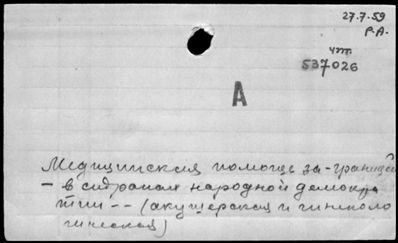 27.7.59
Р.А.
чт.
537026
А
Медицинская помощь за-границей
- в странах народной демокра
тии -- (акушерская и гинеколо
гическая)